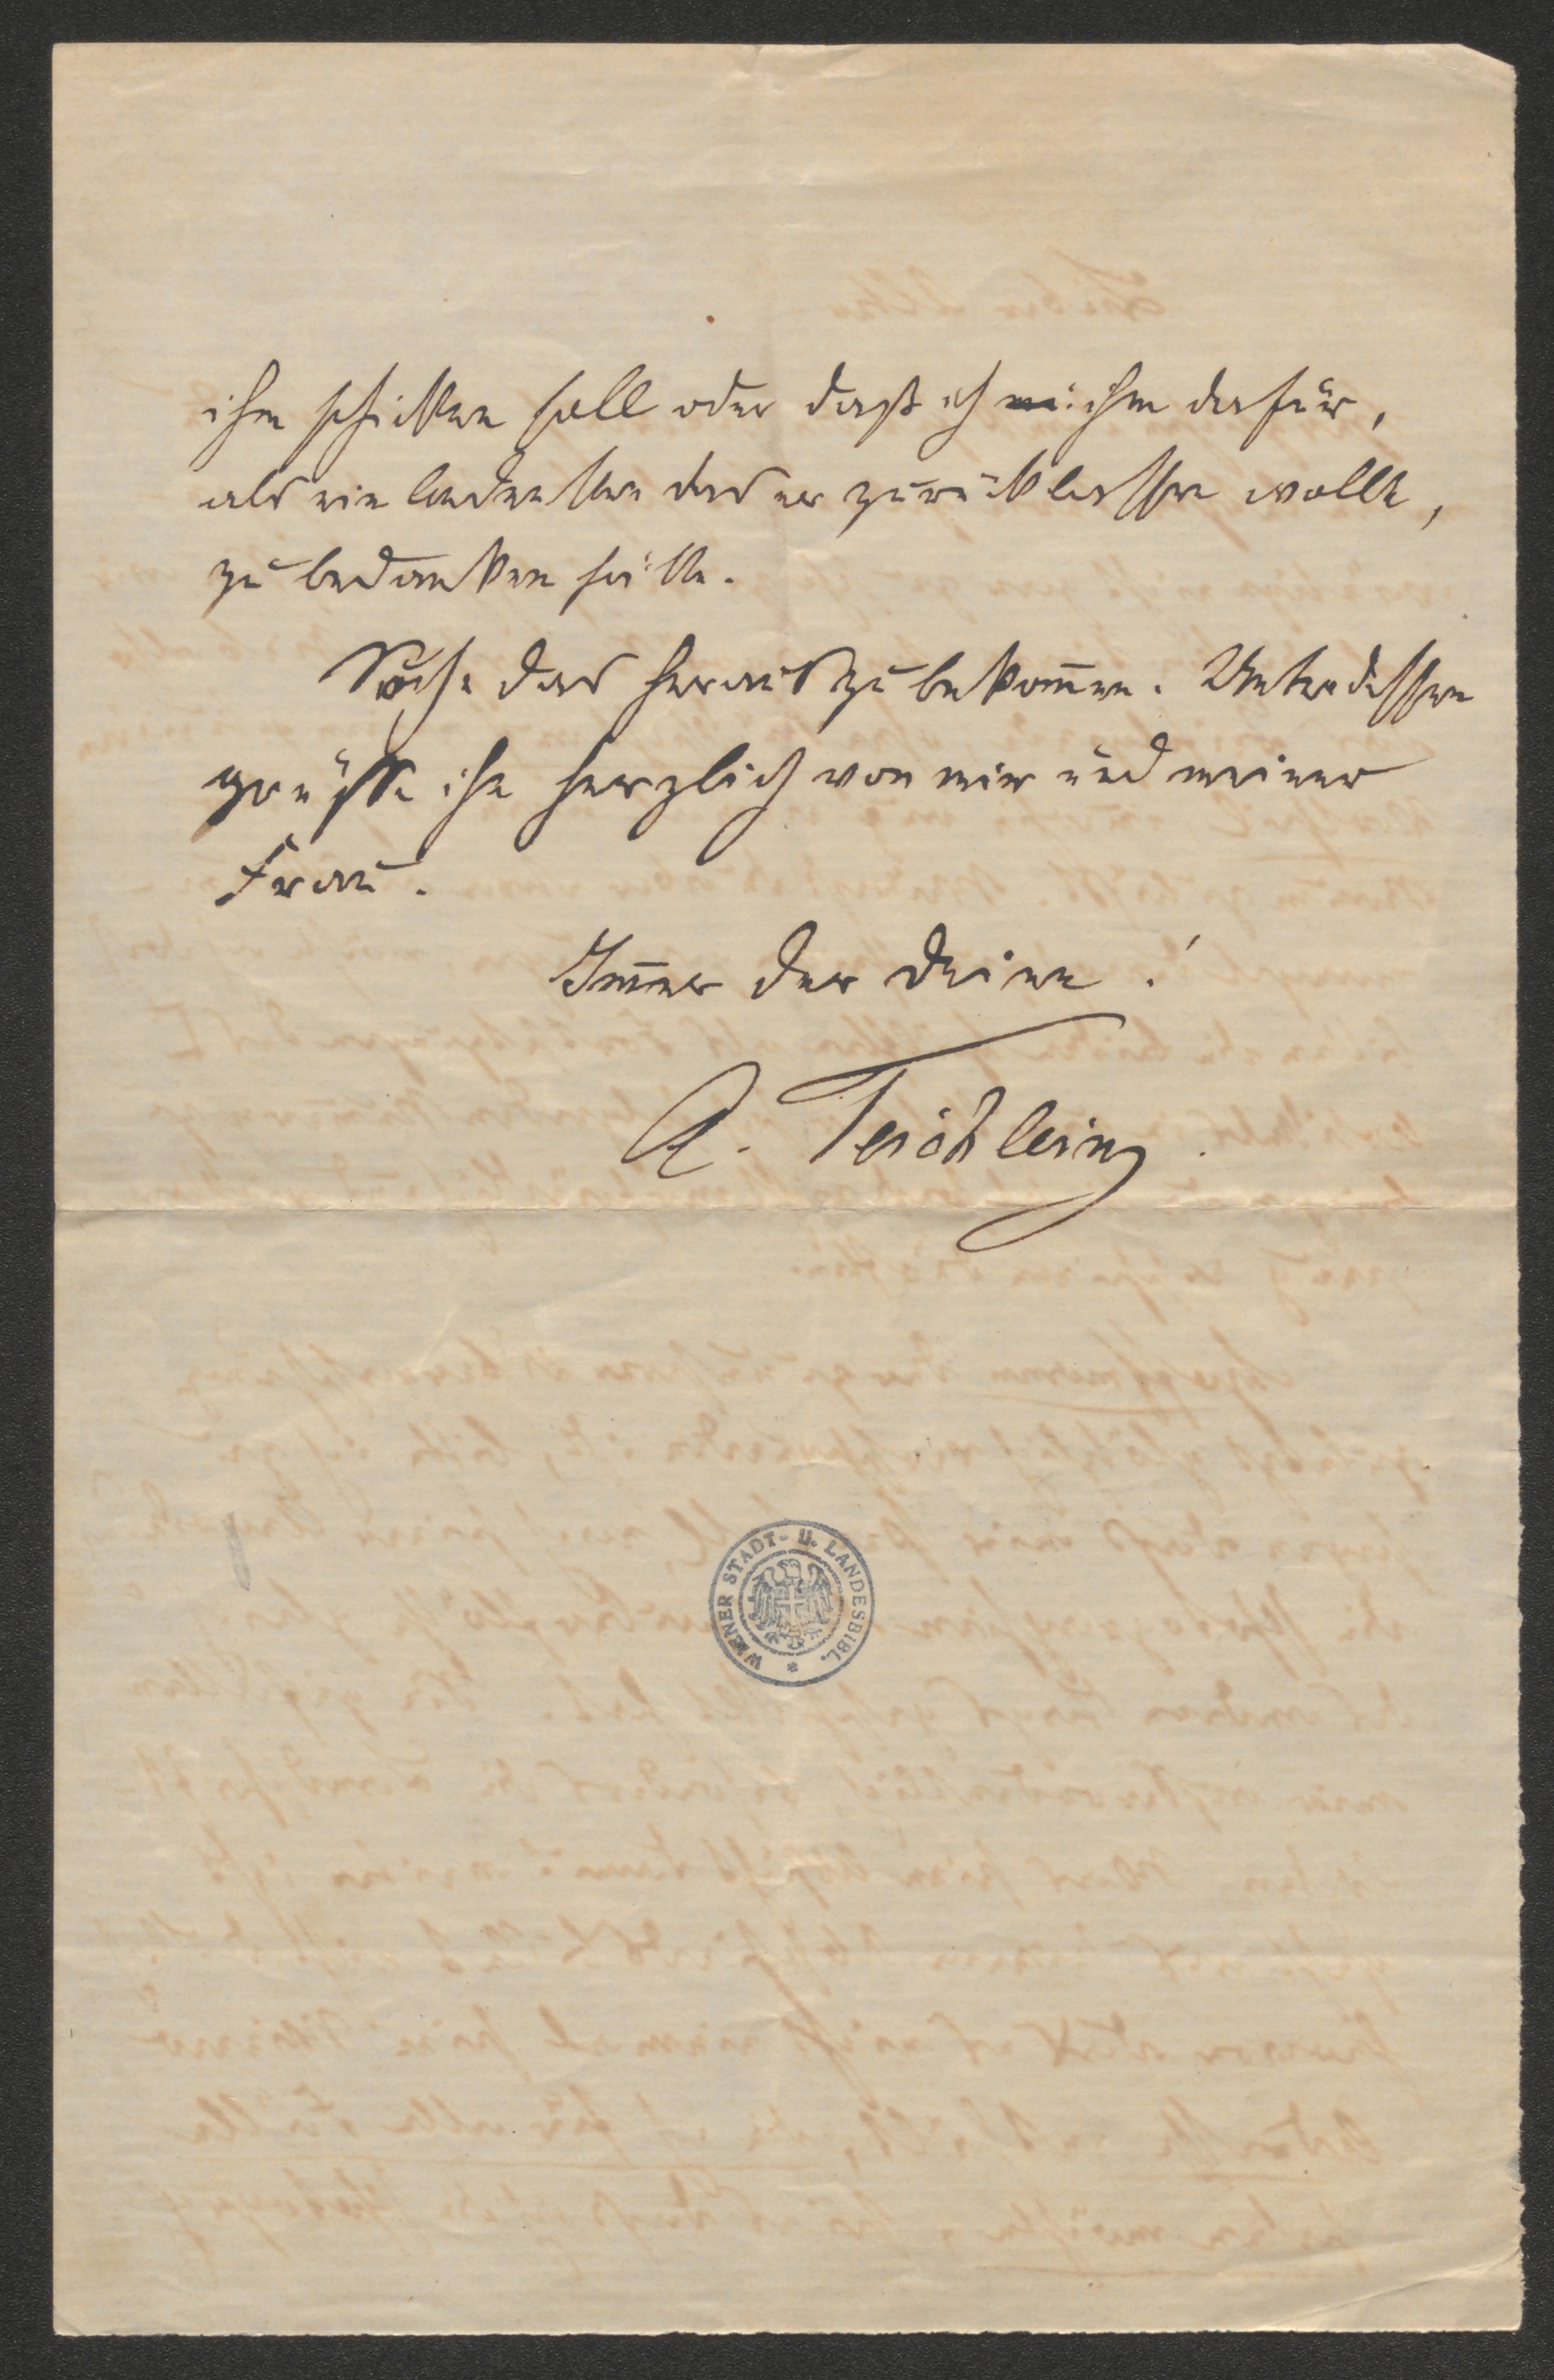 ihm schicken soll oder daß ich ihm dafür,
als ein Andenken das er zurücklassen wollte,
zu bedanken hätte.
Suche das herauszubekom̄en. Unterdessen
grüße ihn herzlich von mir und meiner
Frau.
Im̄er der Deine!
A. Teichlein
WIENER STADT- U. LANDESBIBL. *